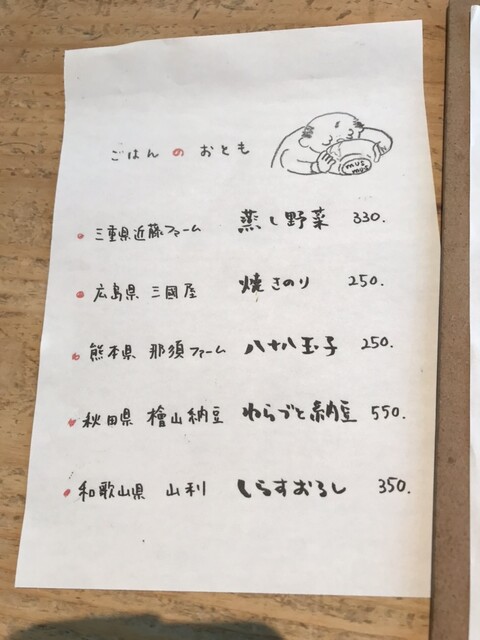 ごはんのおとも
mus mus
三重県近藤ファーム 蒸し野菜 330.
広島県 三國屋 焼きのり 250.
熊本県 那須ファーム 八十八玉子 250.
秋田県 檜山納豆 わらづと納豆 550.
和歌山県 山利 しらすおろし 350.